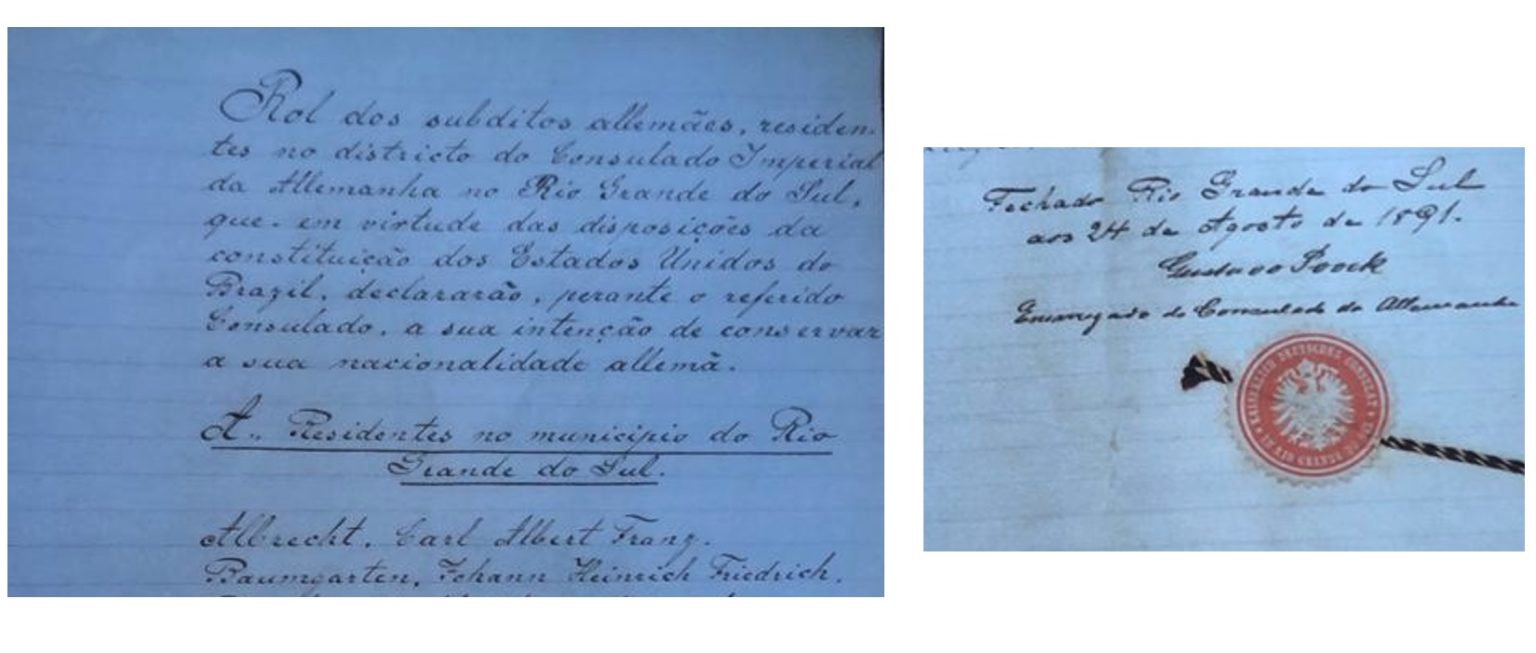 Rol dos subditos allemães, residen-
tes no districto do Consulado Imperial
da Allemanha no Rio Grande do Sul,
que em virtude das disposições da
constituição dos Estados Unidos do
Brazil, declararão, perante o referido
Consulado, a sua intenção de conservar
a sua nacionalidade allemã.
A. Residentes no municipio do Rio
Grande do Sul.
Albrecht, Carl Albert Franz.
Baumgarten, Johann Heinrich Friedrich.
Fechado Rio Grande do Sul
aos 24 de Agosto de 1891.
Gustavo Poock
Encarregado do Consulado da Allemanha
KAISERLICH DEUTSCHES CONSULAT
RIO GRANDE DO SUL